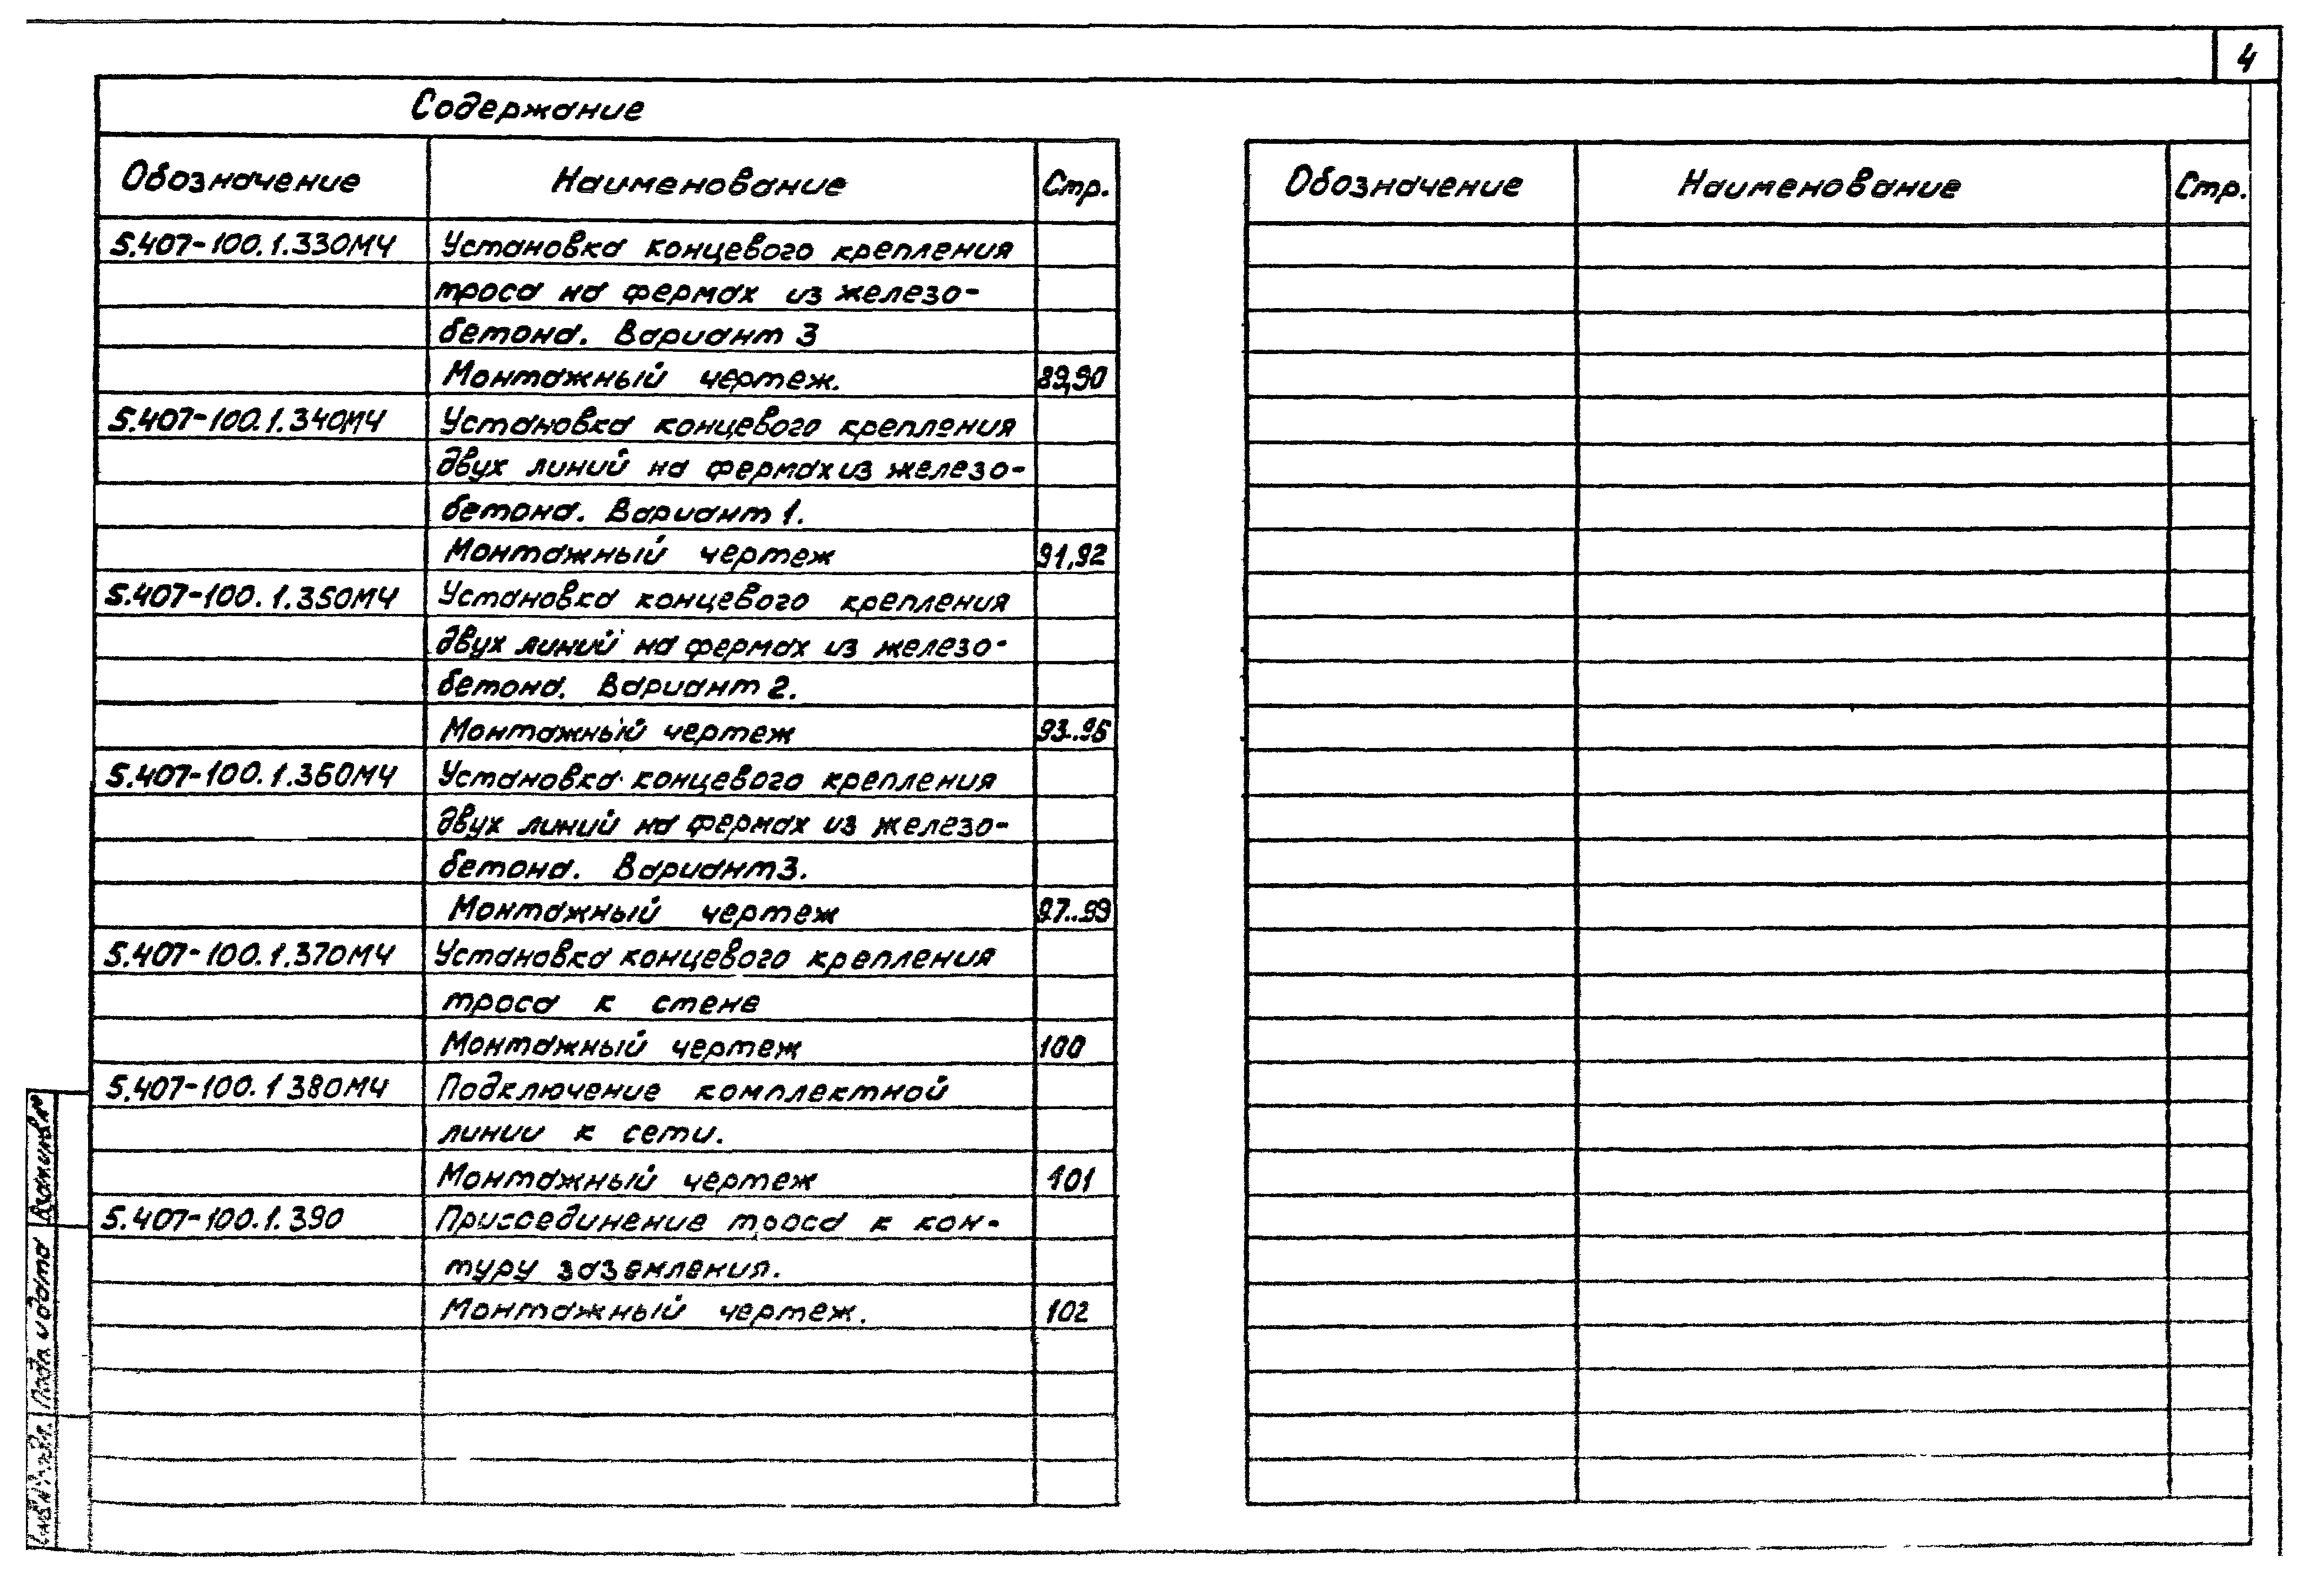 4
Содержание
Обозначение Наименование Стр.
5.407-100.1.330МЧ Установка концевого крепления
троса на фермах из железо-
бетона. Вариант 3
Монтажный чертеж. 89,90
5.407-100.1.340МЧ Установка концевого крепления
двух линий на фермах из железо-
бетона. Вариант 1.
Монтажный чертеж 91,92
5.407-100.1.350МЧ Установка концевого крепления
двух линий на фермах из железо-
бетона. Вариант 2.
Монтажный чертеж
5.407-100.1.360МЧ Установка концевого крепления
двух линий на фермах из железо-
бетона. Вариант 3.
Монтажный чертеж 97..99
5.407-100.1.370МЧ Установка концевого крепления
троса к стене
Монтажный чертеж 100
5.407-100.1 380МЧ Подключение комплектной
линии к сети.
Монтажный чертеж 101
5.407-100.1.390 Присоединение троса к кон-
туру заземления.
Монтажный чертеж. 102
Обозначение Наименование Стр.
Подп и дата